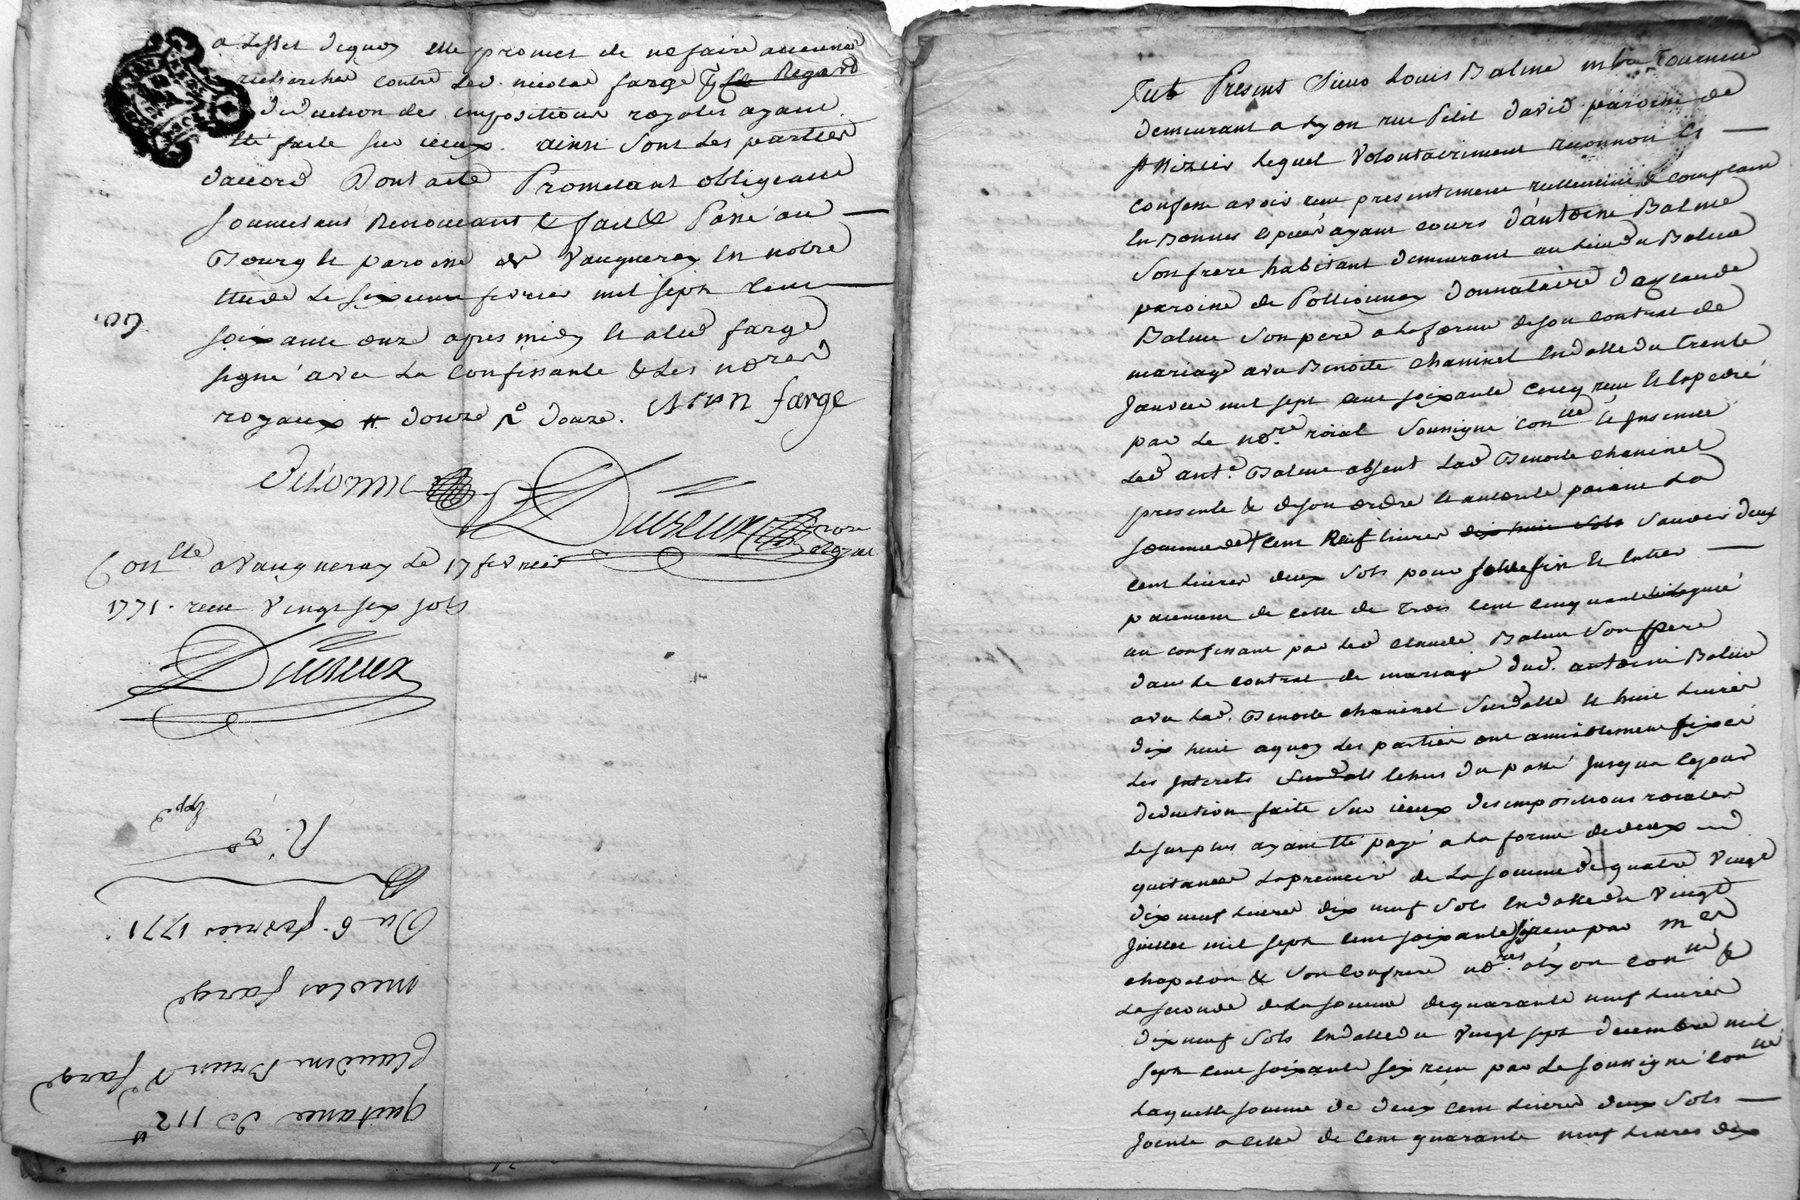 a Leffet dequoy elle promet de ne faire aucune
recherche contre led. nicolas farge
deduction des impositions royales ayant
été faite sur iceux. ainsi sont les parties
daccord Dont acte Promettant obligeant
soumettant Renonceant & fait & Passé au
Bourg et paroisse de Vaugneray en notre
étude Le sixieme fevrier mil sept cent
soixante onze apres midy et aled farge
signé avec La confessante & Les nores
royaux # douze Ro douze. farge
Delorme Dureux
nore
royal
Conlle a Vaugneray Le 17 fevrier
1771. recu Vingt six sols
Dureux
quitance de 112 ⁱⁱ
claudine Brun Ve farge
nicolas farge
Du 6. fevrier 1771
N. 30
Expd
fut Present Sieur Louis Balme mtre Tourneur
demeurant a Lyon rue Petit david paroisse de
St Nizier Lequel Volontairement reconnoit et
confesse avoir recu presentement reellement & comptant
en Bonnes especes ayant cours d'antoine Balme
son frere habitant demeurant au Lieu du Balme
paroisse de Pollionnay donnataire de Claude
Balme son pere a la forme de son contrat de
mariage avec Benoite chaminel en datte du trente
Janvier mil sept cent soixante cinq recu et expedié
par Le nore. roial soussigné conlle & Insinué
Led ant.e Balme absent Lad Benoite chaminel
presente & de son ordre et autorité paiant La
somme de cent Neuf livres dix huit sols savoir deux
cent Livres deux sols pour solde fin et entier
paiement de celle de trois cent cinquante Leguée
au confessant par Led Claude Balme son pere
dans Le contrat de mariage dud. antoine Balme
avec Lad. Benoite chaminel susdatté et huit Livres
dix huit aquoy Les parties ont amiablement fixés
Les Interets echus du passé Jusqua ce jour
deduction faitte sur iceux des impositions roiales
Le surplus ayant été payé a la forme de deux
quitances La premiere de La somme de quatre Vingt
dix neuf Livres dix neuf sols en datte du Vingt
Juillet mil sept cent soixante six recue par mes
chapelon & son confrere nores. a Lyon conlle &
La seconde de La somme de quarante neuf Livres
dix neuf sols en datte du Vingt sept decembre mil
sept cent soixante six recue par Le soussigné conlle
Laquelle somme de deux cent Livres deux sols
Jointe a celle de cent quarante neuf Livres dix